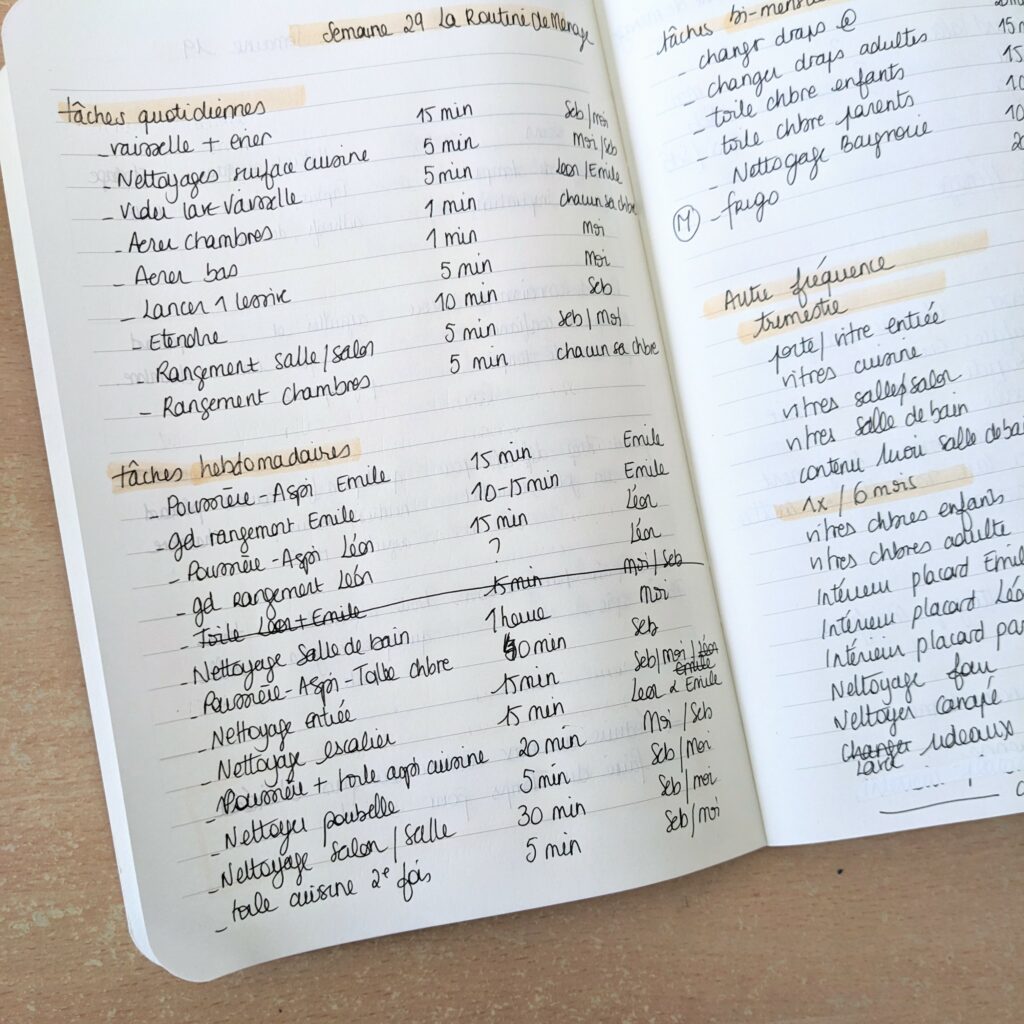 Semaine 29 La Routine De Ménage
tâches quotidiennes
- vaisselle + évier 15 min Seb/moi
- Nettoyages surface cuisine 5 min Moi/Seb
- Vider lave vaisselle 5 min Léon/Emile
- Aérer chambres 1 min chacun sa chbre
- Aérer bas 1 min Moi
- Lancer 1 lessive 5 min Moi
- Etendre 10 min Seb
- Rangement salle/salon 5 min Seb/Moi
- Rangement chambres 5 min chacun sa chbre
tâches hebdomadaires
- Poussière-Aspi Emile 15 min Emile
- gd rangement Emile 10-15min Emile
- Poussière-Aspi Léon 15 min Léon
- gd rangement Léon ? Léon
- Toile Léon + Emile 15 min Moi/Seb
- Nettoyage Salle de bain 1 heure Moi
- Poussière-Aspi-Toile chbre 40 min Seb
- Nettoyage entrée 15 min Seb/Moi/Léon Emile
- Nettoyage escalier 15 min Léon & Emile
- Poussière + toile aspi cuisine 20 min Moi/Seb
- Nettoyer poubelle 5 min Seb/Moi
- Nettoyage Salon/Salle 30 min Seb/moi
- toile cuisine 2e fois 5 min Seb/moi
tâches bi-mensu
- changer draps
- changer draps adultes 15
- toile chbre enfants 15
- toile chbre parents 10
- Nettoyage Baignoire 10
(M) - frigo 20
Autre fréquence
trimestre
porte/vitre entrée
vitres cuisine
vitres salle/salon
vitres salle de bain
contenu tiroir salle de bai
1x/6 mois
vitres chbres enfants
vitres chbres adulte
Intérieur placard Emile
Intérieur placard Léo
Intérieur placard par
Nettoyage four
Nettoyer canapé
changer rideaux
Laver